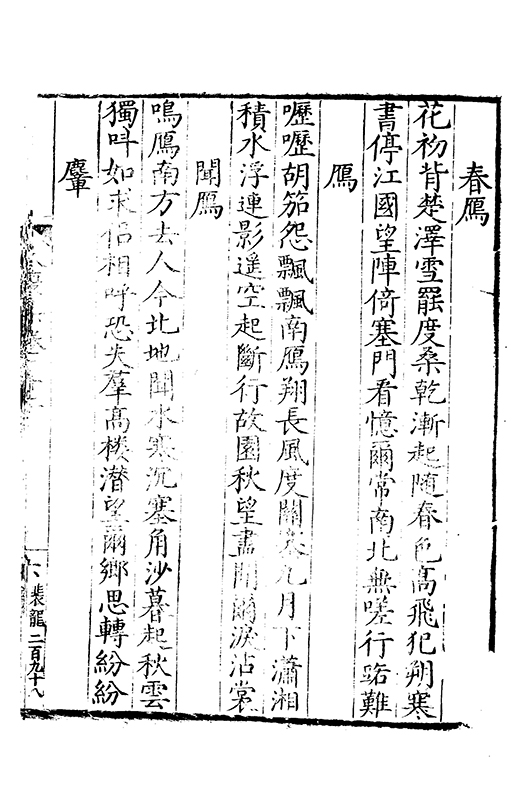 春鴈
花初背楚澤雪罷度桑乾漸起隨春色高飛犯朔寒
書停江國望陣倚塞門看憶爾常南北無嗟行路難
鴈
嚦嚦胡笳怨飄飄南鴈翔長風度關塞九月下瀟湘
積水浮連影遥空起斷行故園秋望盡聞爾淚沾裳
聞鴈
鳴鴈南方去人今北地聞水寒沉塞角沙暮起秋雲
獨叫如求侣相呼恐失羣高樓潜望爾鄉思轉紛紛
麏
裴龍二百九十八